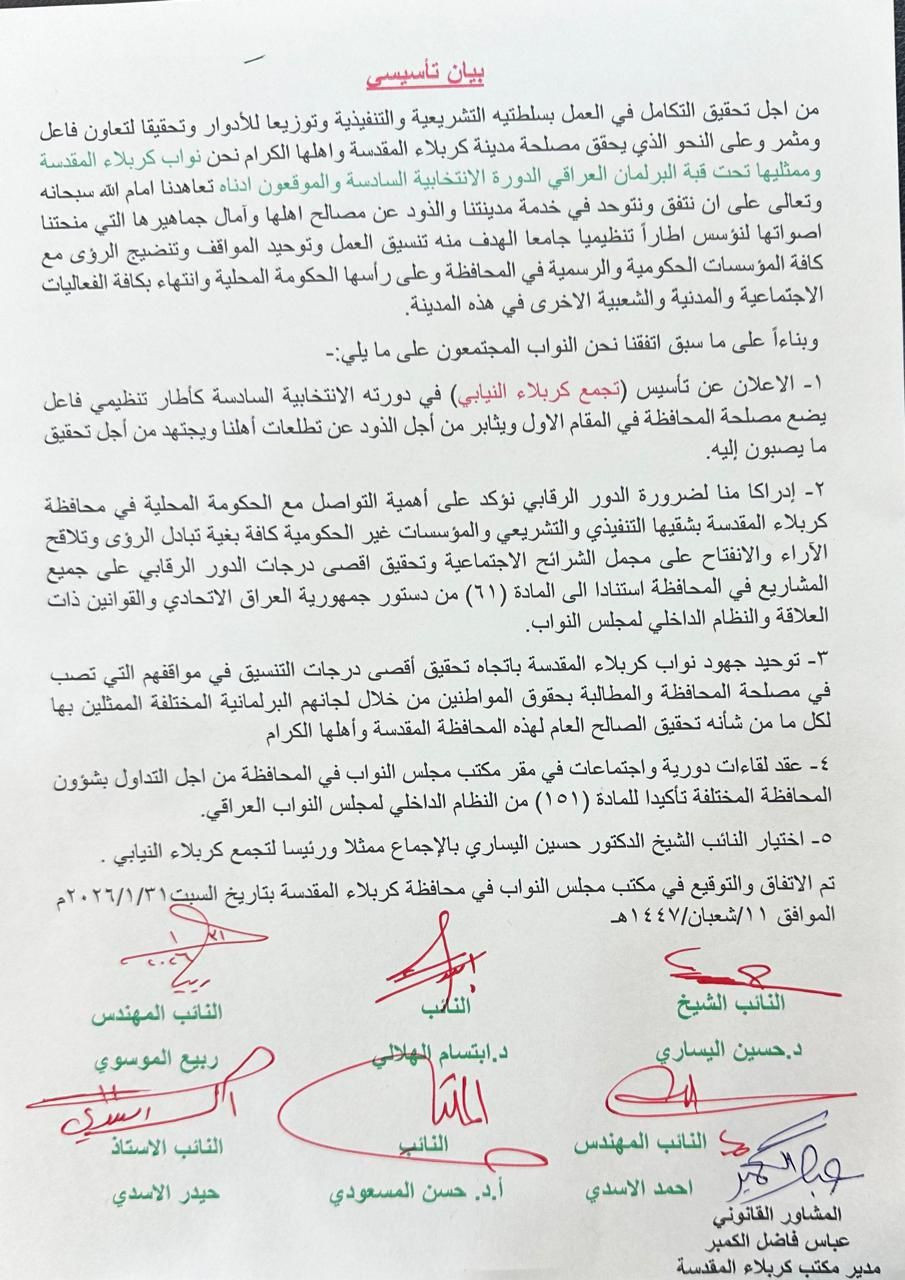 بيان تأسيسي
من اجل تحقيق التكامل في العمل بسلطتيه التشريعية والتنفيذية وتوزيعا للأدوار وتحقيقا لتعاون فاعل
ومثمر وعلى النحو الذي يحقق مصلحة مدينة كربلاء المقدسة واهلها الكرام نحن نواب كربلاء المقدسة
وممثليها تحت قبة البرلمان العراقي الدورة الانتخابية السادسة والموقعون ادناه تعاهدنا امام الله سبحانه
وتعالى على ان نتفق ونتوحد في خدمة مدينتنا والذود عن مصالح اهلها وآمال جماهيرها التي منحتنا
اصواتها لنؤسس اطاراً تنظيميا جامعا الهدف منه تنسيق العمل وتوحيد المواقف وتنضيج الرؤى مع
كافة المؤسسات الحكومية والرسمية في المحافظة وعلى رأسها الحكومة المحلية وانتهاء بكافة الفعاليات
الاجتماعية والمدنية والشعبية الاخرى في هذه المدينة.
وبناءاً على ما سبق اتفقنا نحن النواب المجتمعون على ما يلي:-
١- الاعلان عن تأسيس (تجمع كربلاء النيابي) في دورته الانتخابية السادسة كأطار تنظيمي فاعل
يضع مصلحة المحافظة في المقام الاول ويثابر من أجل الذود عن تطلعات أهلنا ويجتهد من أجل تحقيق
ما يصبون إليه.
٢- إدراكا منا لضرورة الدور الرقابي نؤكد على أهمية التواصل مع الحكومة المحلية في محافظة
كربلاء المقدسة بشقيها التنفيذي والتشريعي والمؤسسات غير الحكومية كافة بغية تبادل الرؤى وتلاقح
الآراء والانفتاح على مجمل الشرائح الاجتماعية وتحقيق اقصى درجات الدور الرقابي على جميع
المشاريع في المحافظة استنادا الى المادة (٦١) من دستور جمهورية العراق الاتحادي والقوانين ذات
العلاقة والنظام الداخلي لمجلس النواب.
٣- توحيد جهود نواب كربلاء المقدسة باتجاه تحقيق أقصى درجات التنسيق في مواقفهم التي تصب
في مصلحة المحافظة والمطالبة بحقوق المواطنين من خلال لجانهم البرلمانية المختلفة الممثلين بها
لكل ما من شأنه تحقيق الصالح العام لهذه المحافظة المقدسة وأهلها الكرام
٤- عقد لقاءات دورية واجتماعات في مقر مكتب مجلس النواب في المحافظة من اجل التداول بشؤون
المحافظة المختلفة تأكيدا للمادة (١٥١) من النظام الداخلي لمجلس النواب العراقي.
٥- اختيار النائب الشيخ الدكتور حسين اليساري بالإجماع ممثلا ورئيسا لتجمع كربلاء النيابي .
تم الاتفاق والتوقيع في مكتب مجلس النواب في محافظة كربلاء المقدسة بتاريخ السبت ٢٠٢٦/١/٣١م
الموافق ١١/شعبان/١٤٤٧هـ
النائب الشيخ
د.حسين اليساري
النائب
د.ابتسام الهلالي
٣١ ١
٢٠٢٦
النائب المهندس
ربيع الموسوي
النائب المهندس
احمد الاسدي
النائب
أ.د. حسن المسعودي
النائب الاستاذ
حيدر الاسدي
المشاور القانوني
عباس فاضل الكمبر
مدير مكتب كربلاء المقدسة